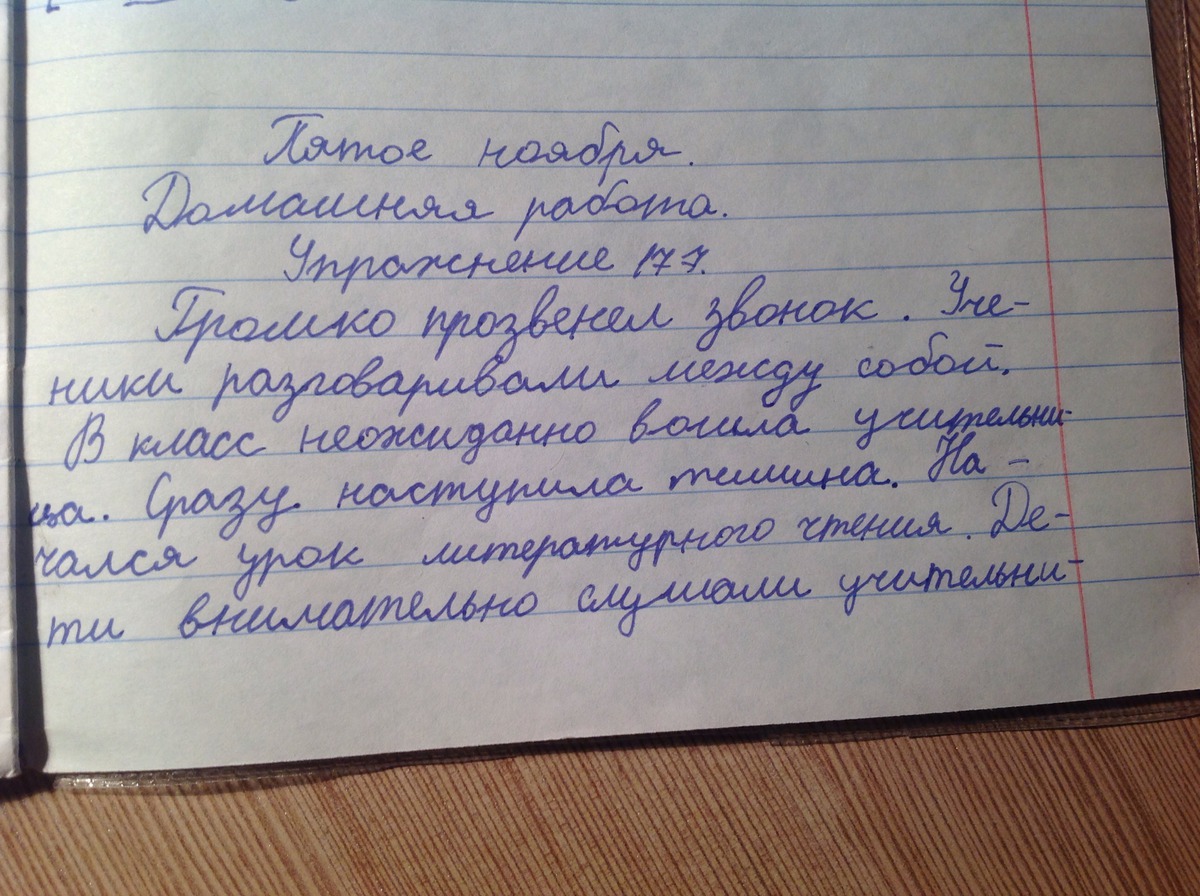 Пятое ноября.
Домашняя работа.
Упражнение 177.
Громко прозвенел звонок. Уче-
ники разговаривали между собой.
В класс неожиданно вошла учительни-
ца. Сразу наступила тишина. На-
чался урок литературного чтения. Де-
ти внимательно слушали учительни-